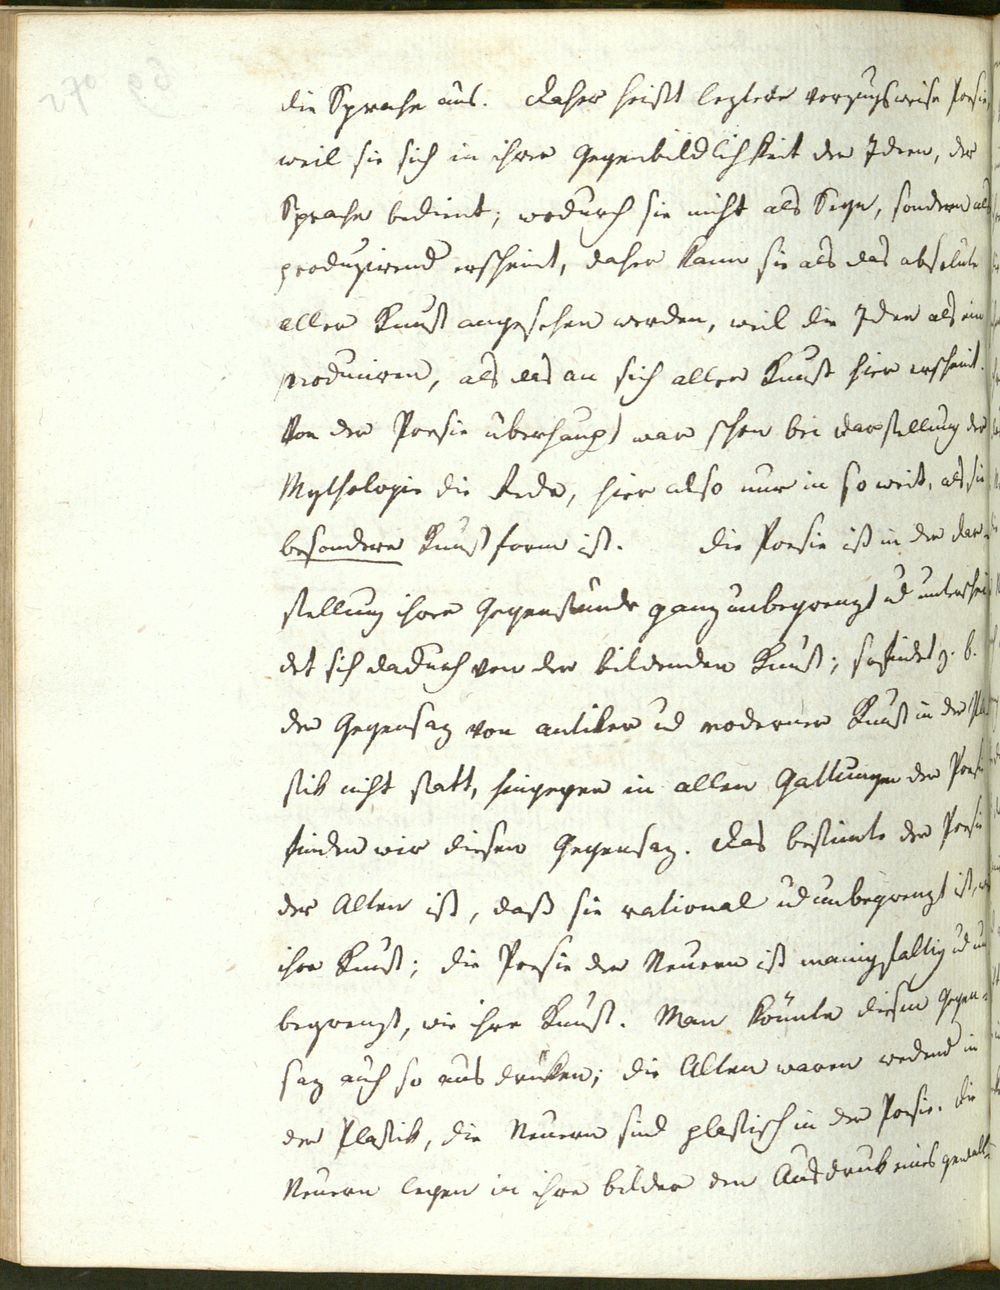 270 98
die Sprache aus. Daher heißt leztere vorzugsweise Poesie,
weil sie sich in ihrer Gegenbildlichkeit der Ideen, der
Sprache bedient; wodurch sie nicht als Seyn, sondern als
produzirend erscheint, daher kann sie als das absolute
aller Kunst angesehen werden, weil die Idee als ein
produciren, als das an sich aller Kunst hier erscheint.
Von der Poesie überhaupt war schon bei Darstellung der
Mythologie die Rede, hier also nur in so weit, als sie
besondere Kunstform ist. Die Poesie ist in der Dar-
stellung ihrer Gegenstände ganz unbegrenzt ud unterschei
det sich dadurch von der bildenden Kunst; so findet z. b.
der Gegensaz von antiker ud moderner Kunst in der Pla
stik nicht statt, hingegen in allen Gattungen der Poesie
finden wir diesen Gegensaz. Das bestimte der Poesie
der Alten ist, daß sie rational ud unbegrenzt ist, wie
ihre Kunst; die Poesie der Neuern ist manigfaltig ud un
begrenzt, wie ihre Kunst. Man könnte diesen Gegen-
saz auch so ausdrüken; die Alten waren redend in
der Plastik, die Neuern sind plastisch in der Poesie. Die
Neuern legen in ihre bilder den Ausdruk eines gewalt-